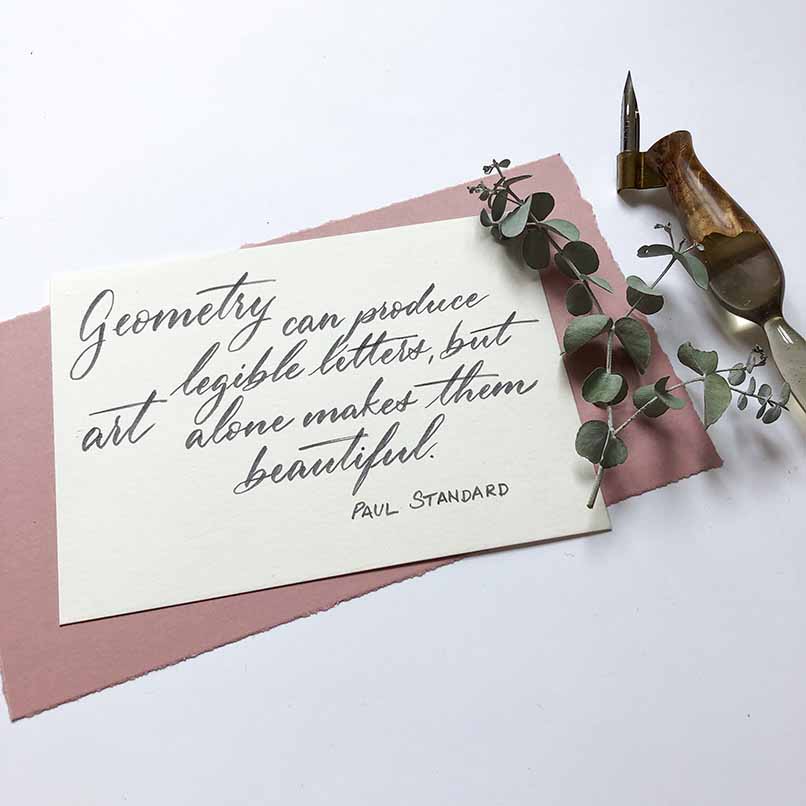 Geometry can produce
legible letters, but
art alone makes them
beautiful.
PAUL STANDARD